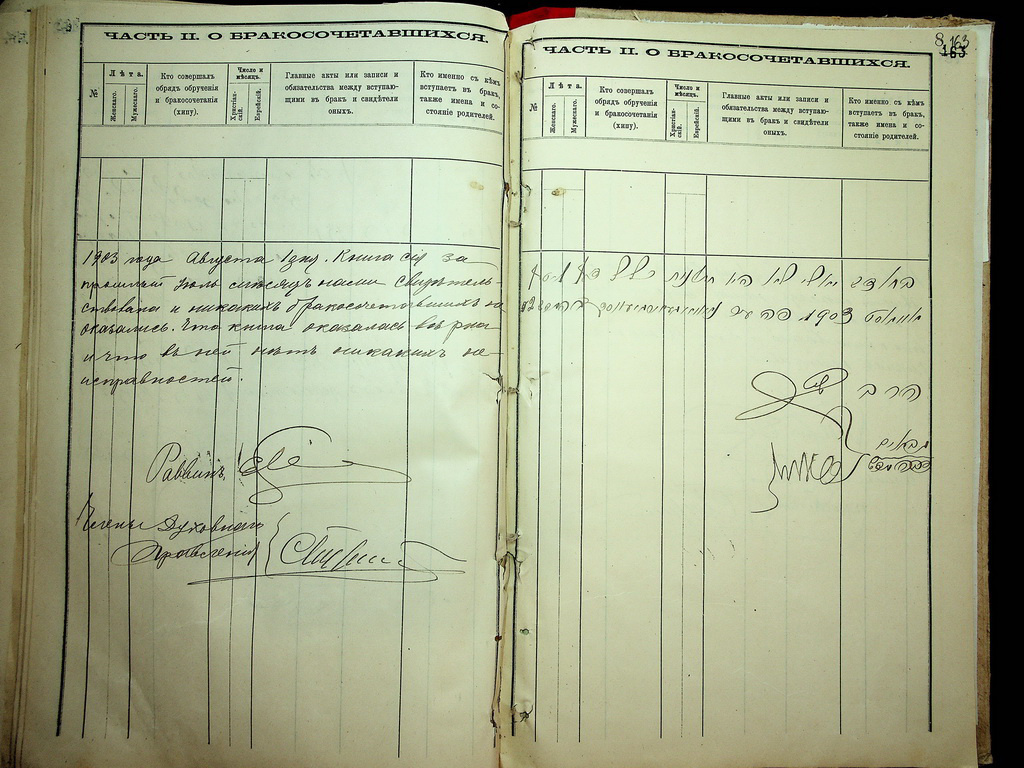 ЧАСТЬ II. О БРАКОСОЧЕТАВШИХСЯ.
№
Лѣта.
Женскаго.
Мужескаго.
Кто совершалъ
обрядъ обрученія
и бракосочетанія
(хипу).
Число и
мѣсяцъ.
Христіан-
скій.
Еврейскій.
Главные акты или записи и
обязательства между вступаю-
щими въ бракъ и свидѣтели
оныхъ.
Кто именно съ кѣмъ
вступаетъ въ бракъ,
также имена и со-
стояніе родителей.
1903 года Августа 1 дня. Книга сія за
прошлый Іюль мѣсяцъ нами свидѣтель-
ствована и никакихъ бракосочетавшихся не
оказалось. Что книга оказалась вѣрна
и что въ ней нѣтъ никакихъ не-
исправностей.
Раввинъ,
Члены Духовнаго
Правленія
8 163
163
ЧАСТЬ II. О БРАКОСОЧЕТАВШИХСЯ.
№
Лѣта.
Женскаго.
Мужескаго.
Кто совершалъ
обрядъ обрученія
и бракосочетанія
(хипу).
Число и
мѣсяцъ.
Христіан-
скій.
Еврейскій.
Главные акты или записи и
обязательства между вступаю-
щими въ бракъ и свидѣтели
оныхъ.
Кто именно съ кѣмъ
вступаетъ въ бракъ,
также имена и со-
стояніе родителей.
בחודש יולי לא היו
אויגוסט 1903
הרב